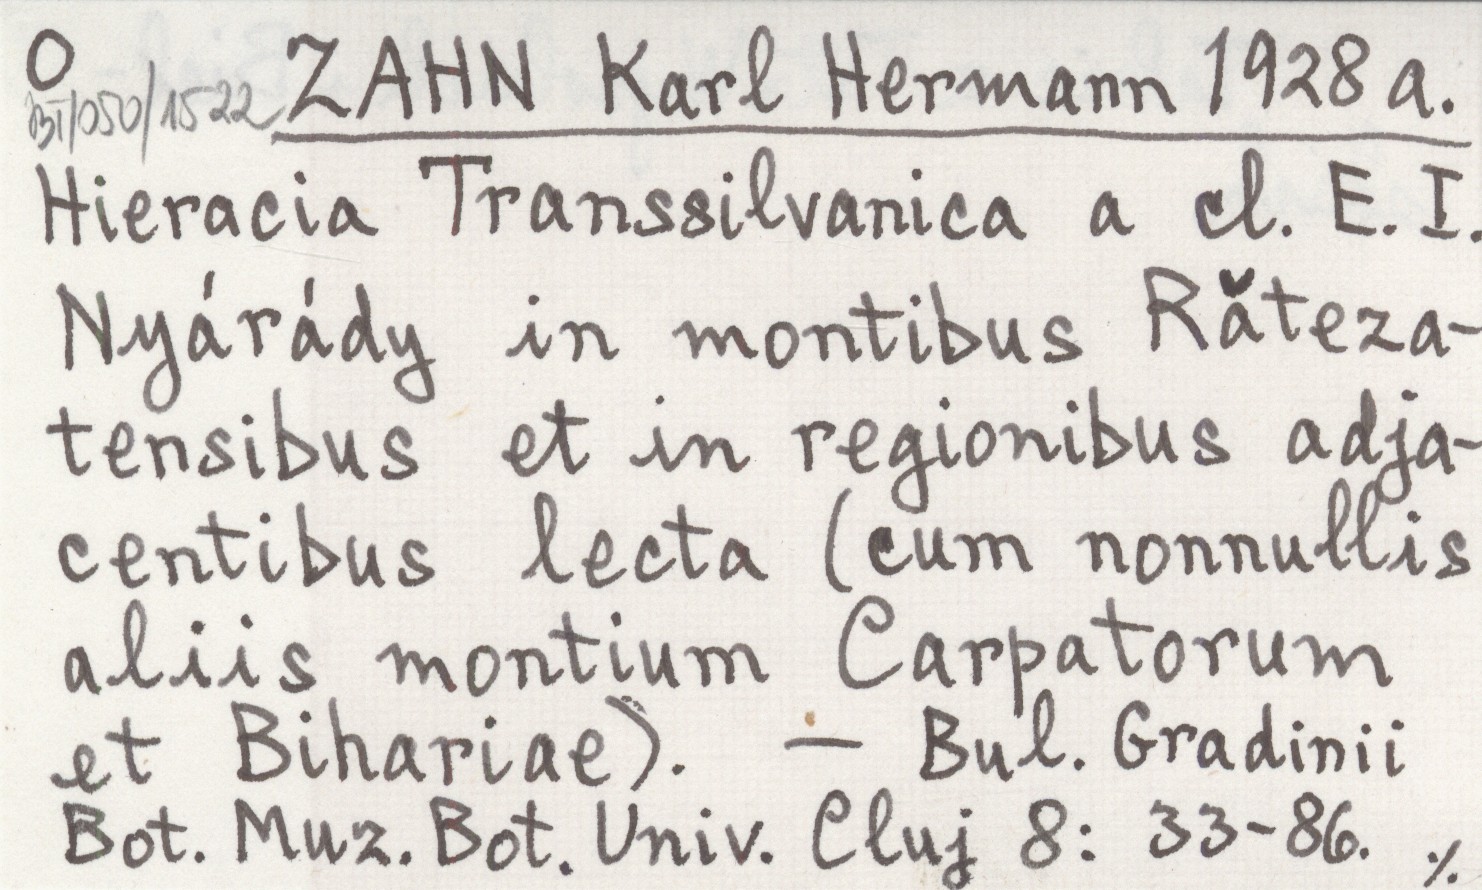 O ZAHN Karl Hermann 1928 a.
BI/050/1522
Hieracia Transsilvanica a cl. E. I.
Nyárády in montibus Răteza-
tensibus et in regionibus adja-
centibus lecta (cum nonnullis
aliis montium Carpatorum
et Bihariae). — Bul. Gradinii
Bot. Muz. Bot. Univ. Cluj 8: 33-86. ./.